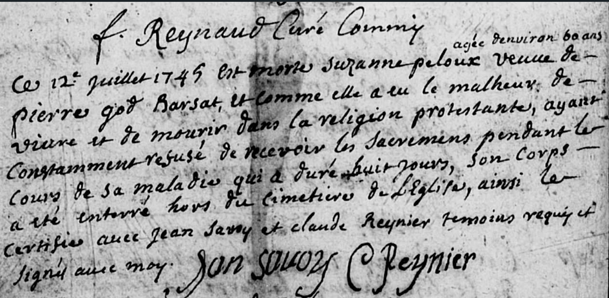 f. Reynaud Curé Commis
agée denviron 60 ans
Ce 12e juillet 1745 est morte suzanne peloux veuve de
pierre god Barsat, et comme elle a eu le malheur de
vivre et de mourir dans la religion protestante, ayant
Constamment refusé de recevoir les sacremens pendant le
cours de sa maladie qui a duré huit jours, son corps
a eté enterré hors du cimetiere de l'Eglise, ainsi le
Certifie avec jean savoy et claude Reynier temoins requis et
signés avec moy. Jan savoy C Reynier